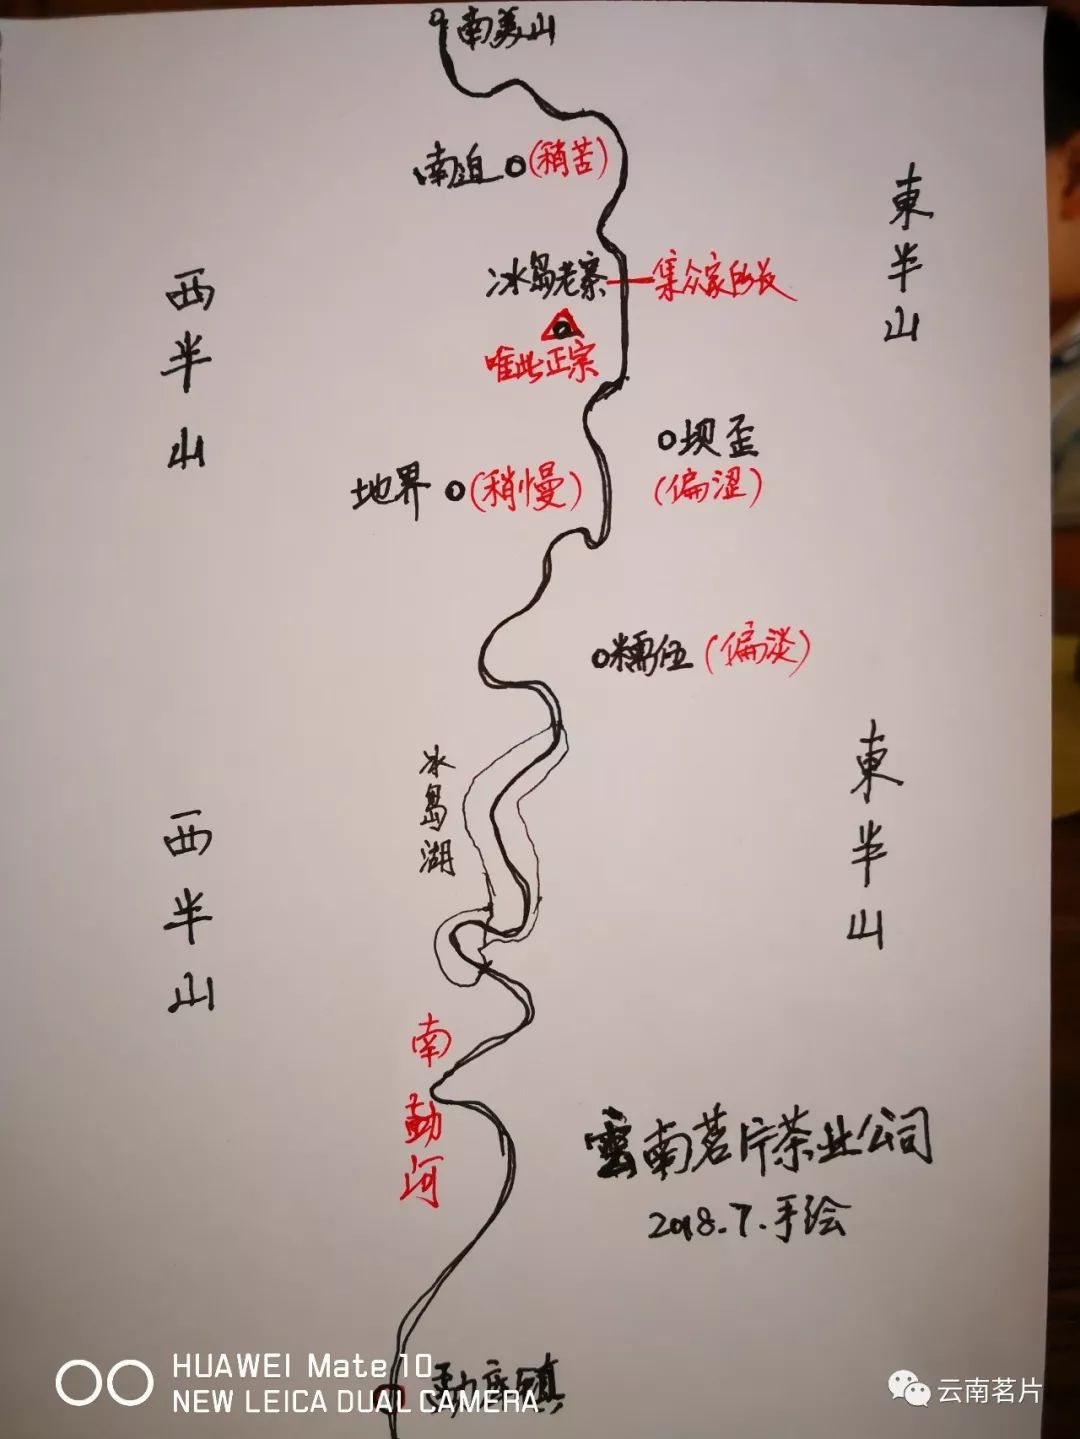 南美山
南迫 (稍苦)
冰岛老寨 集众家所长
唯此正宗
東半山
西半山
坝歪
(偏涩)
地界 (稍慢)
糯伍 (偏淡)
冰岛湖
東半山
西半山
南勐河
雲南茗片茶业公司
2018.7.手绘
勐库镇
HUAWEI Mate 10
NEW LEICA DUAL CAMERA
云南茗片